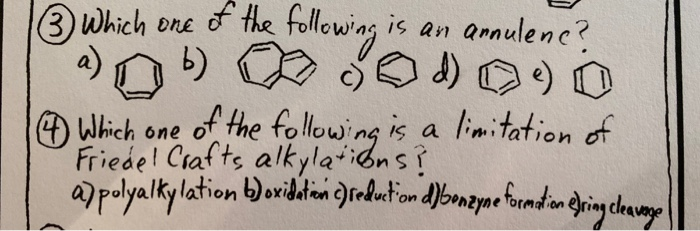 ③ Which one of the following is an annulene?
a) b) c) d) e)
④ Which one of the following is a limitation of
Friedel Crafts alkylations?
a) polyalkylation b) oxidation c) reduction d) benzyne formation e) ring cleavage